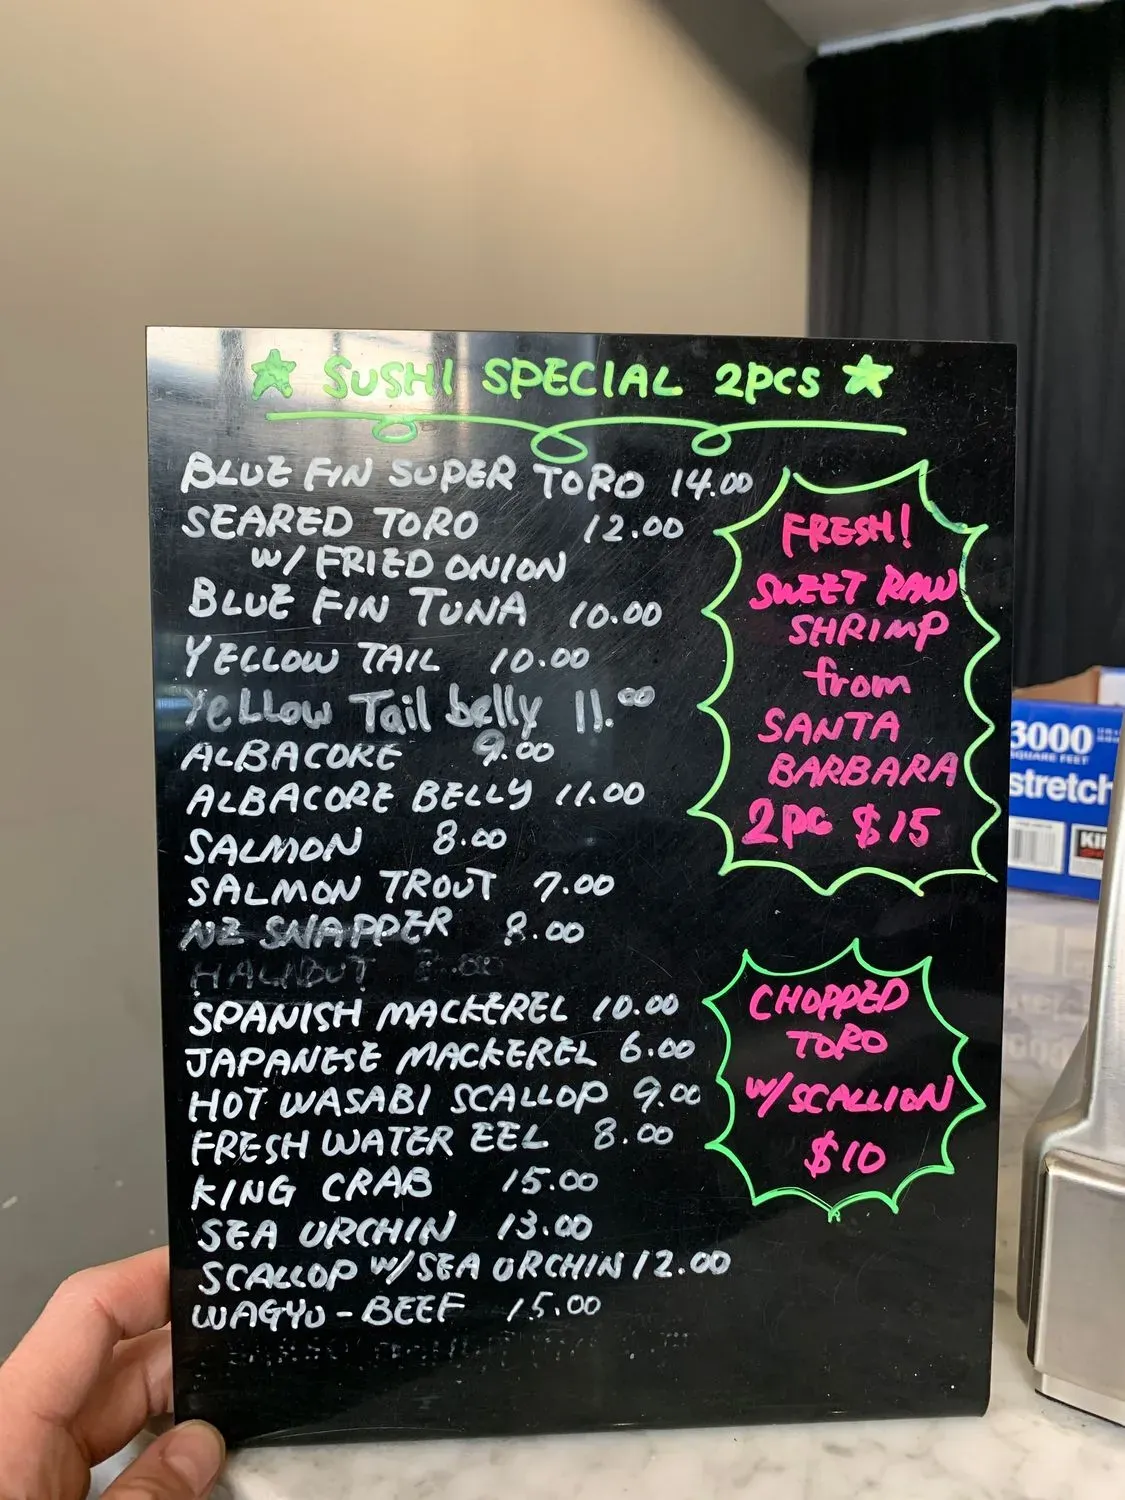 SUSHI SPECIAL 2PCS
BLUE FIN SUPER TORO 14.00
SEARED TORO 12.00
W/ FRIED ONION
BLUE FIN TUNA 10.00
YELLOW TAIL 10.00
Yellow Tail belly 11.00
ALBACORE 9.00
ALBACORE BELLY 11.00
SALMON 8.00
SALMON TROUT 7.00
NZ SNAPPER 8.00
HALIBUT
SPANISH MACKEREL 10.00
JAPANESE MACKEREL 6.00
HOT WASABI SCALLOP 9.00
FRESH WATER EEL 8.00
KING CRAB 15.00
SEA URCHIN 13.00
SCALLOP W/SEA URCHIN 12.00
WAGYU-BEEF 15.00
FRESH!
SWEET RAW
SHRIMP
from
SANTA
BARBARA
2pc $15
CHOPPED
TORO
W/SCALLION
$10
3000
SQUARE FEET
stretch